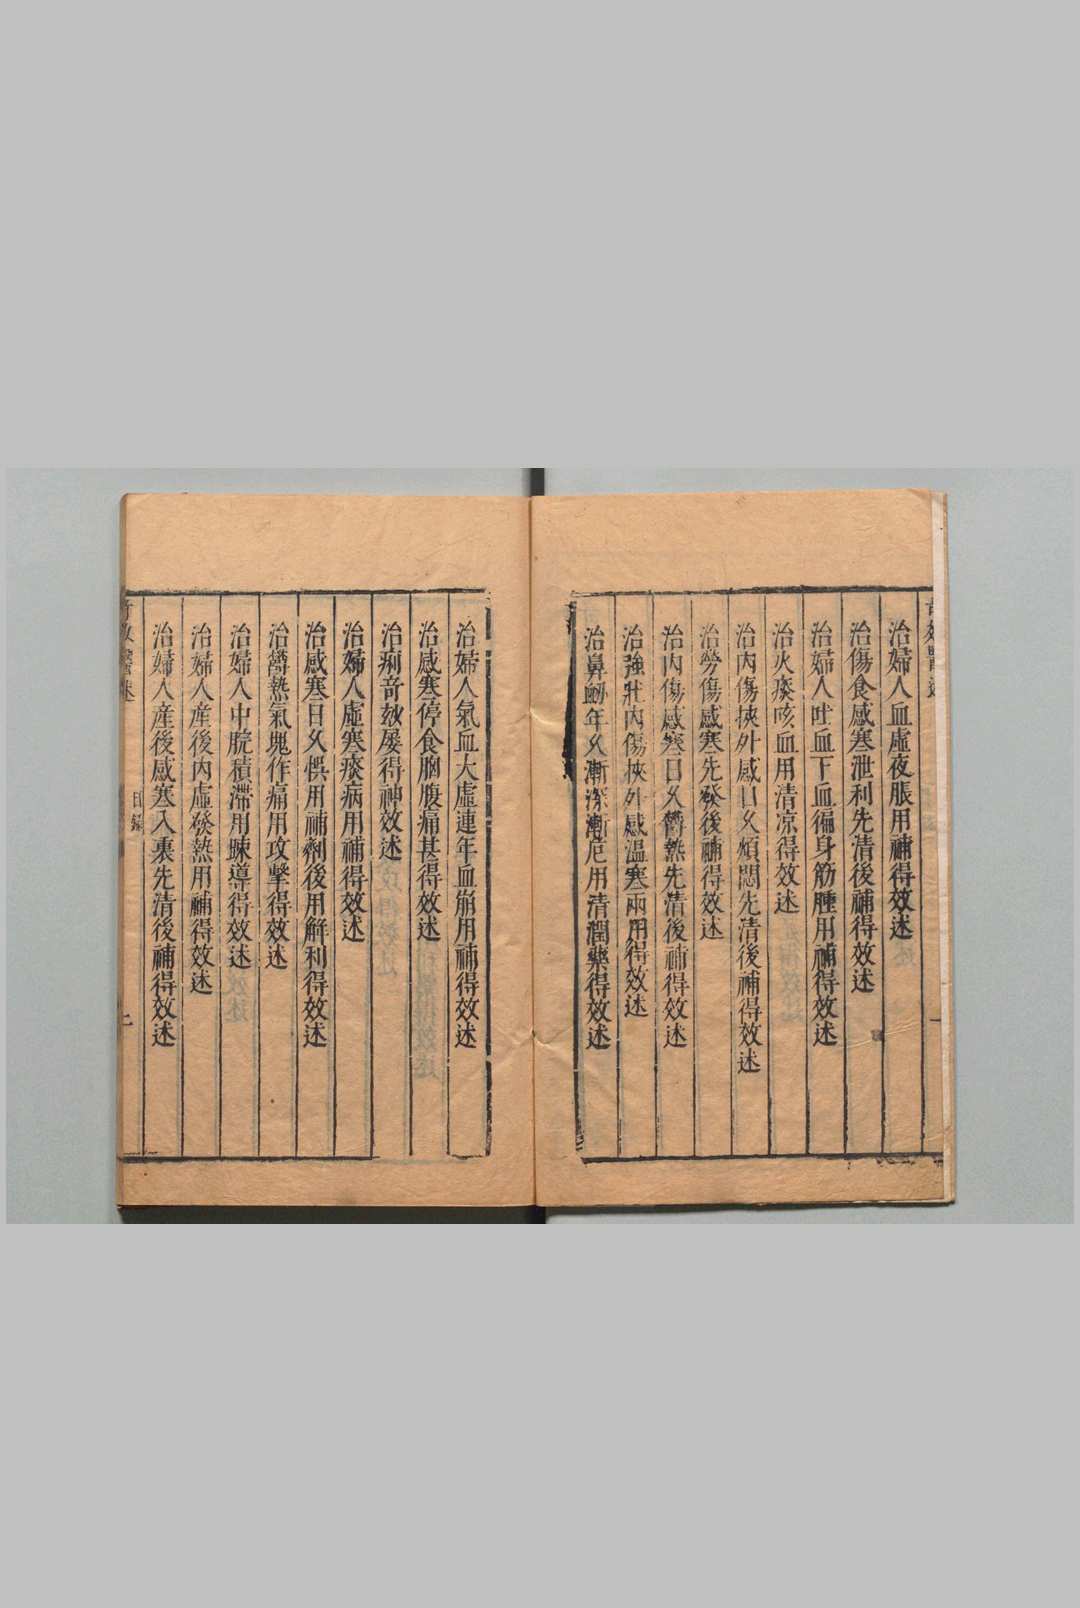 治婦人血虛夜脹用補得效述
治傷食感寒泄利先清後補得效述
治婦人吐血下血徧身筋腫用補得效述
治火痰咳血用清凉得效述
治內傷挾外感日久煩悶先清後補得效述
治勞傷感寒先發後補得效述
治內傷感寒日久鬱熱先清後補得效述
治強壯內傷挾外感溫寒兩用得效述
治鼻衂年久漸深漸危用清潤藥得效述
治婦人氣血大虛連年血崩用補得效述
治感寒停食胸腹痛甚得效述
治痢奇効屡得神效述
治婦人虛寒痰病用補得效述
治感寒日久悞用補劑後用解利得效述
治鬱熱氣塊作痛用攻擊得效述
治婦人中脘積滯用踈導得效述
治婦人産後內虛發熱用補得效述
治婦人産後感寒入裏先清後補得效述
目錄
二